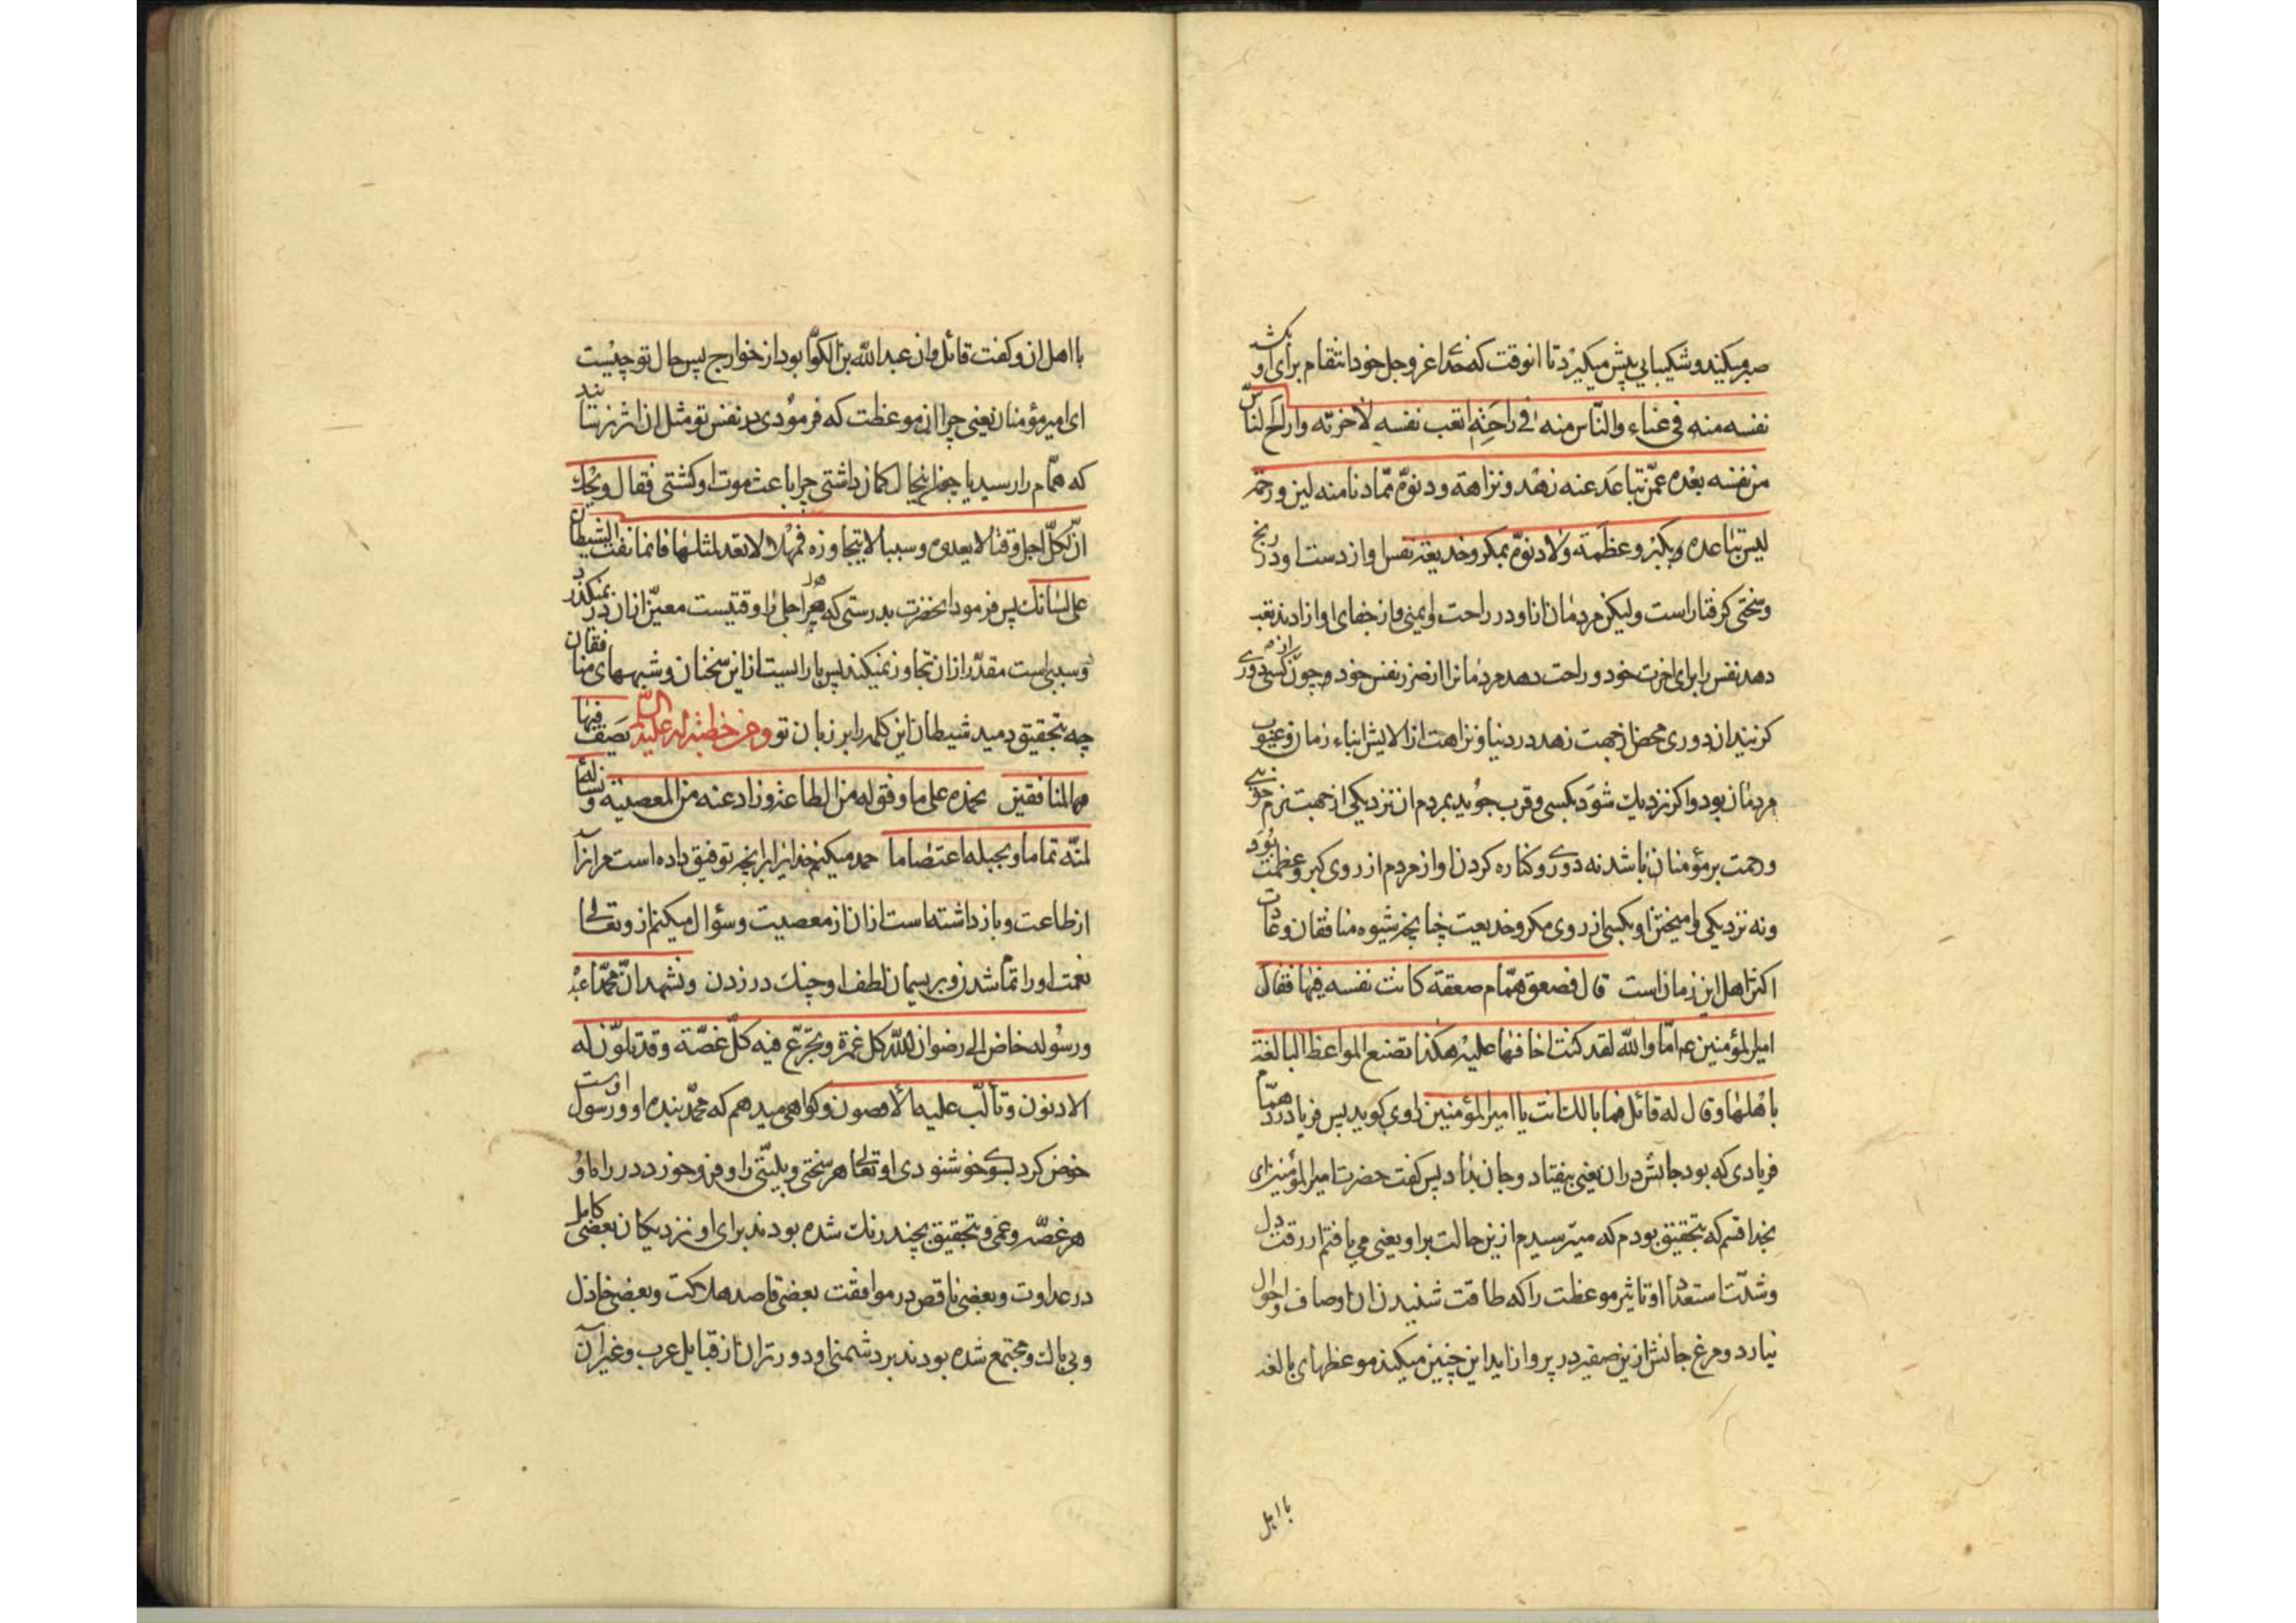 صبر میکند و شکیبایی پیش میگیرد تا انوقت که خدای عز و جل خود انتقام برای او بکشد
نفسه منه فی عناء والنّاس منه فی راحَةٍ اتعب نفسه لاخرته واراح النّاس
من نفسه بعْده عمّن تباعَد عنه زهْد ونزاهة ودنوّه ممّادنا منه لین ورحمة
لیس تباعده بکبر وعظَمَة ولادنوّه بمکر وخدیعة نفس او از دست او در رنج
وسختی کرفتار است ولیکن مردمان از او در راحت و ایمنی و از جفای او ازادند تعب
دهد نفس را برای اخرت خود و راحت دهد مردمانرا از ضرر نفس خود و چون از کسی دوری
کزیند ان دوری محض از جهت زهد در دنیا و نزاهت از الایش ابناء زمان و عیوب
مردمان بود و اکر نزدیك شوَد بکسی و قرب جوُید بمردم ان نزدیکی از جهت نرم خویی
و رحمت بر مؤمنان باشد نه دوری و کناره کردن او از مردم از روی کبر و عظمت بُوَد
ونه نزدیکی و امیختن او بکسی از روی مکر و خدیعت چنانچه شیوه منافقان و عادت
اکثر اهل این زمان است قال فصعق همّام صعقة کانت نفسه فیها فقال
امیرالمؤمنین ع امّا والله لقد کنت اخافها علیه هکذا تصنع المواعظ البالغة
باهلها وقال له قائل فما بالك انت یا امیرالمؤمنین راوی کوید پس فریاد زد همّام
فریادی که بود جانش در ان یعنی بیفتاد و جان بداد پس کفت حضرت امیرالمؤمنین ای
بخدا قسم که بتحقیق بودم که میترسیدم ازین حالت بر او یعنی می یافتم از رقت دل
وشدّت استعداد او تاثیر موعظت را که طاقت شنیدن ان اوصاف و احوال
نیارد و مرغ جانش ازین صفیر در پرواز اید این چنین میکند موعظهای بالغه
با اهل
با اهل ان و کفت قائل و ان عبدالله بن الکوّا بود از خوارج پس حال تو چیْست
ای امیر مؤمنان یعنی چرا ان موعظت که فرموُدی در نفس تو مثل ان اثر نرسانید
که همّام را رسید یا چون اینحال کمان داشتی چرا باعث موت او کشتی فقال ویْحك
انّ لکلّ اجل وقتا لا یعدوه وسببا لا یتجاوزه فمهْلا لا تعد لمثلها فانما نفث الشیطان
علی لسانك پس فرمود انحضرت بدرستی که هر اجل را وقتیست معیّن از ان در نمیکذرد
و سببی است مقدّر از ان تجاوز نمیکند پس باز ایست از این سخنان و شبههای منافقان
چه بتحقیق دمید شیطان این کلمه را بر زبان تو ومن خطبة له علیه السلام یَصف فیها
المنافقین نحمده علی ما وفق له من الطاعة وزاد عنه من المعصیة ونسأله
لمنّته تماما وبحبله اعتصاما حمد میکنم خدایرا بر انچه توفیق داده است مر انرا
از طاعت و باز داشته است از ان از معصیت و سؤال میکنم از و تعالی
نعمت او را تمام شدن و بریسمان لطف او چنك در زدن ونشهد انّ محمّدا عبْده
ورسوُله خاض الی رضوان الله کل غمرة وتجرّع فیه کلّ غصّة وقد تلوّن له
الادنون وتألّب علیه الأقصون و کواهی میدهم که محمّد بنده او و رسول اوست
خوض کرد بسوی خوشنودی او تعالی هر سختی و بلیّتی را و فرو خورد در راه او
هر غصّه و غمی و بتحقیق بچند رنك شده بودند برای او نزدیکان بعضی کامل
در عداوت و بعضی ناقص در موافقت بعضی قاصد هلاکت و بعضی خاذل
و بی باك و مجتمع شده بودند بر دشمنی او دورتران از قبایل عرب و غیر آن